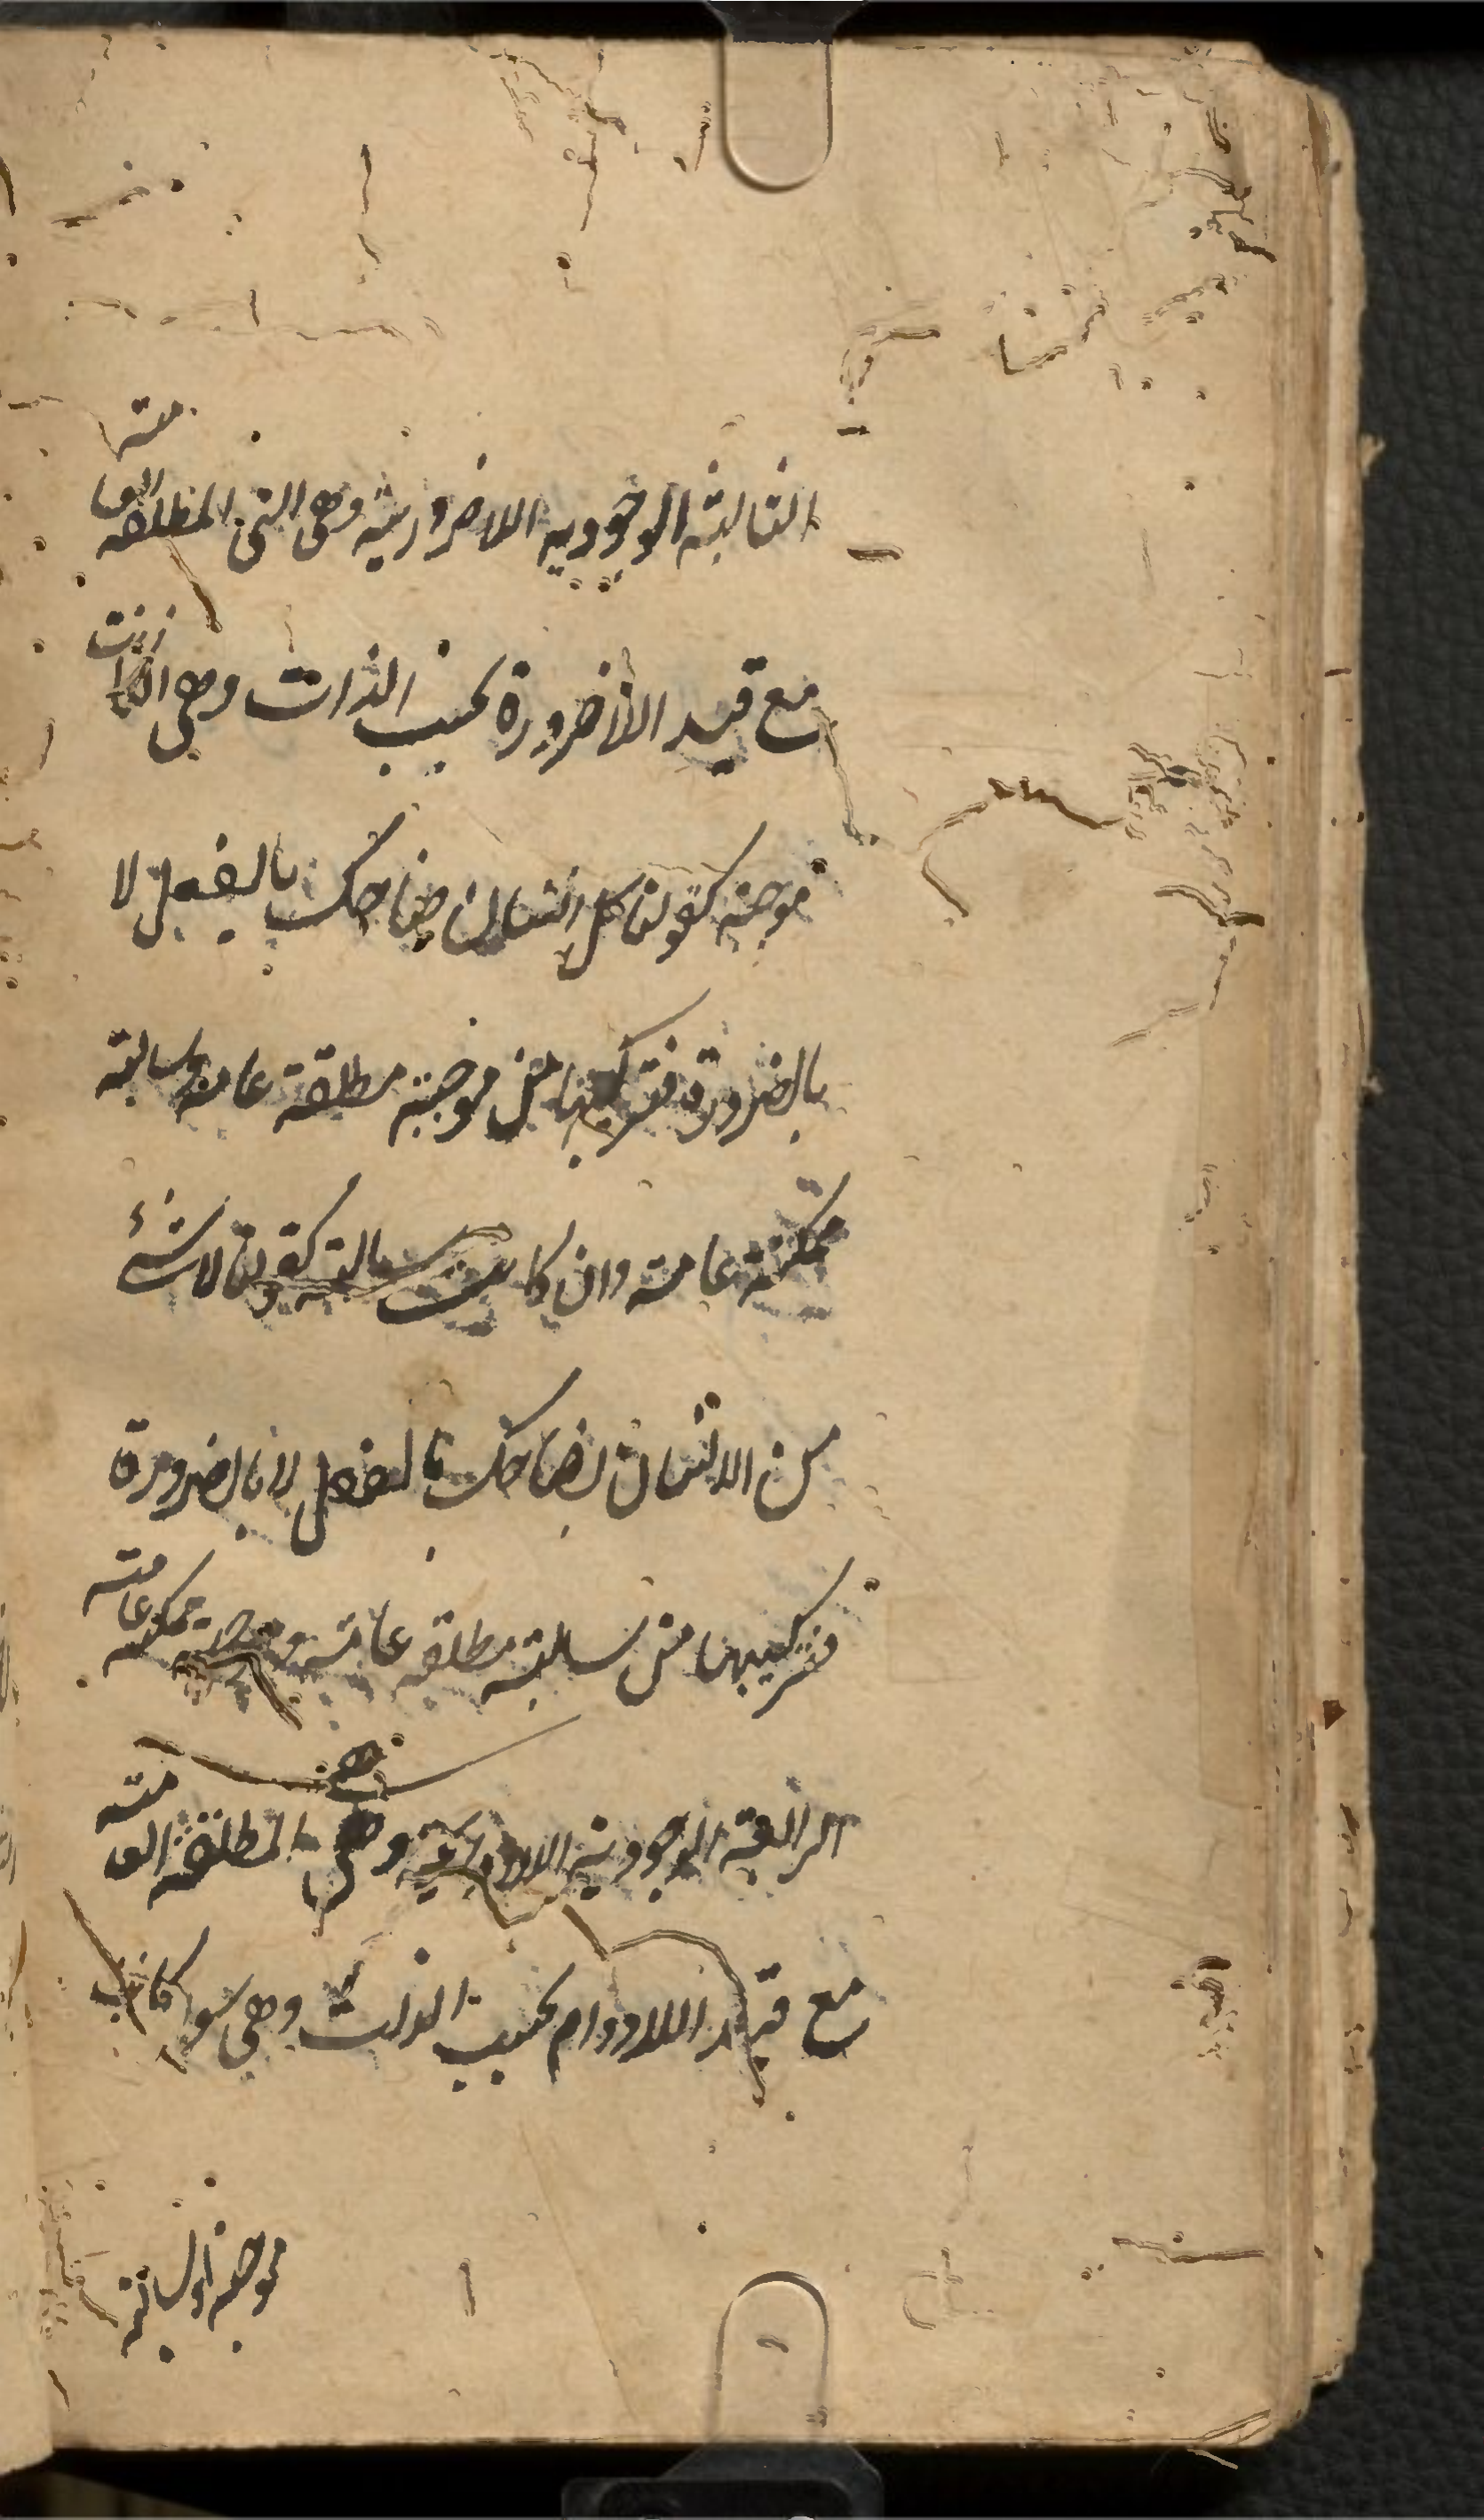 الثالثة الوجودية اللاضرورية وهى التى المطلقة العامة
مع قيد اللاضرورة بحسب الذات وهى ان كانت
موجبة كقولنا كل انسان ضاحك بالفعل لا
بالضرورة فتركيبها من موجبة مطلقة عامة وسالبة
ممكنة عامة وان كانت سالبة كقولنا لا شئ
من الانسان بضاحك بالفعل لا بالضرورة
فتركيبها من سالبة مطلقة عامة وموجبة ممكنة عامة
الرابعة الوجودية اللادائمة وهى المطلقة العامة
مع قيد اللادوام بحسب الذات وهى سواء كانت
موجبة او سالبة